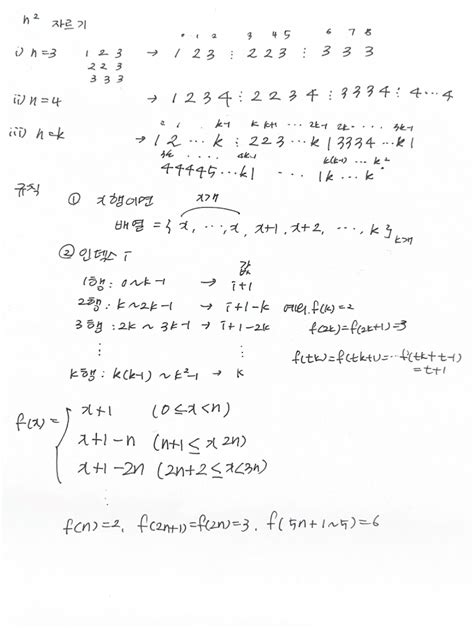 n² 자르기
0 1 2 3 4 5 6 7 8
i) n=3 1 2 3 → 1 2 3 ⋮ 2 2 3 ⋮ 3 3 3
2 2 3
3 3 3
ii) n=4 → 1 2 3 4 ⋮ 2 2 3 4 ⋮ 3 3 3 4 ⋮ 4 … 4
0 1 k-1 k k+1 … 2k-1 2k … 3k-1
iii) n=k → 1 2 … k ⋮ 2 2 3 … k | 3 3 3 4 … k |
3k … 4k-1 k(k-1) … k²
4 4 4 4 5 … k | … 1 k … k
규칙 ① x행이면 x개
배열 = { x, …, x, x+1, x+2, …, k } k개
② 인덱스 i 값
1행 : 0 ~ k-1 → i+1
2행 : k ~ 2k-1 → i+1-k 예외. f(k)=2
3행 : 2k ~ 3k-1 → i+1-2k f(2k)=f(2k+1)=3
⋮ ⋮ f(tk)=f(tk+1)=…f(tk+t-1)
=t+1
k행 : k(k-1) ~ k²-1 → k
f(x)= { x+1 (0≤x<n)
x+1-n (n+1≤x 2n)
x+1-2n (2n+2≤x<3n)
⋮
f(n)=2, f(2n+1)=f(2n)=3, f(5n+1~5)=6